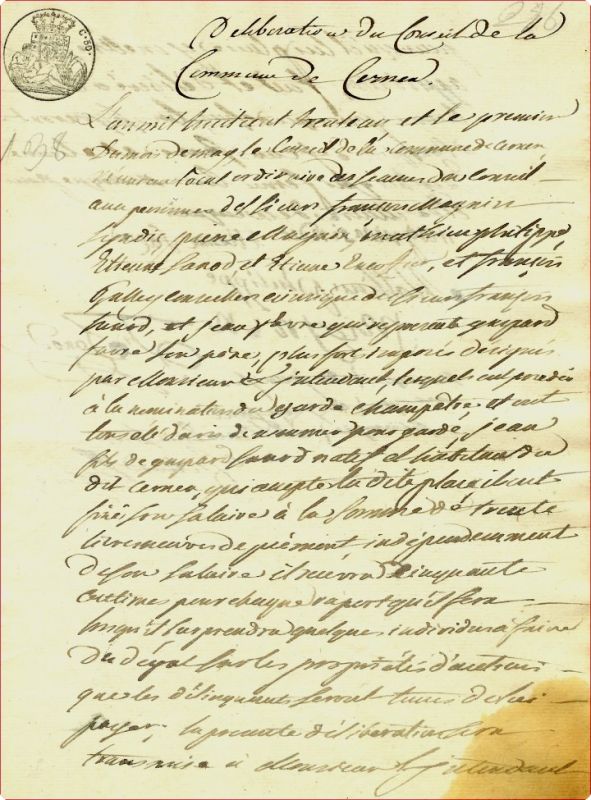 Deliberation du Conseil de la
Commune de Cernex.
L'an mil huit cent trente un et le premier
du mois de may le Conseil de la Commune de Cernex
reuni au local ordinaire des seances du Conseil
aux personnes des sieurs françois Magnin
syndic, pierre Magnin, mathieu philippe,
Etienne Sanod et Etienne, et françois
Gallay conseillers françois
Sanod, et jean favre qui represente gaspard
favre son père, plus fort imposés designés
par Monsieur L'jntendant, lesquels ont procédé
à la nomination du garde champêtre et ont
tous été d'avis de nommer pour garde, jean
fils de gaspard Sanod natif et habitant du
dit Cernex, qui accepte la dite place ils ont
fixé son salaire à la somme de trente
livres neuves de piémont independemment
de son salaire il recevra cinquante
centimes pour chaque raport qu'il fera
lorsqu'il surprendra quelques individus à faire
du dégat sur les propriétés d'autrui
que les délinquants seront tenus de lui
payer, la presente déliberation sera
transmise à Monsieur L'jntendant